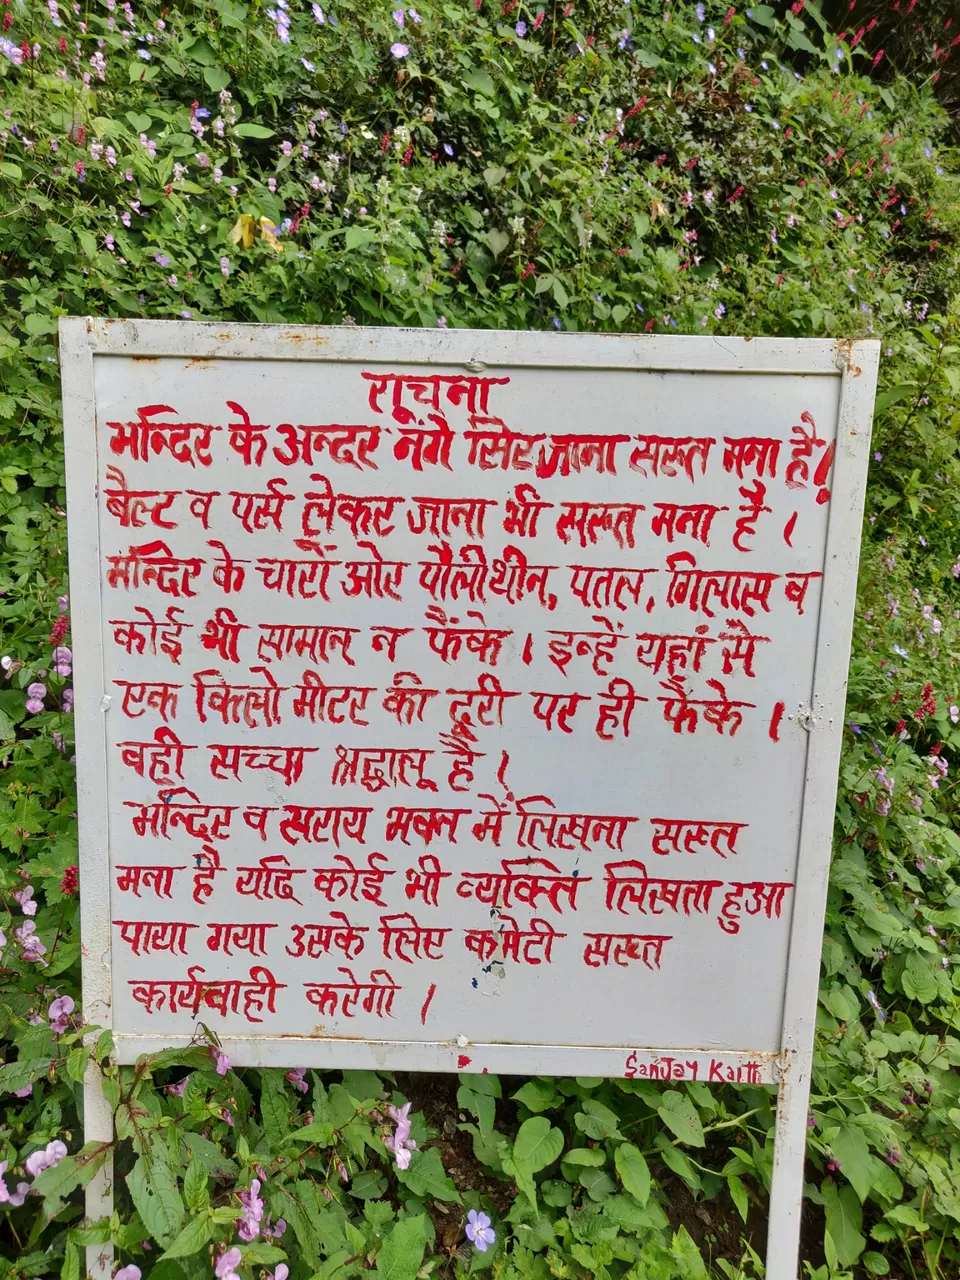 सूचना
मन्दिर के अन्दर नंगे सिर जाना सख्त मना है।
बैल्ट व पर्स लेकर जाना भी सख्त मना है ।
मन्दिर के चारों ओर पौलीथीन, पतल, गिलास व
कोई भी सामान न फैंके । इन्हें यहां से
एक किलो मीटर की दूरी पर ही फैंके ।
वही सच्चा श्रद्धालू है ।
मन्दिर व सराय भक्त में लिखना सख्त
मना है यदि कोई भी व्यक्ति लिखता हुआ
पाया गया उसके लिए कमेटी सख्त
कार्यवाही करेगी ।
Sanjay Kaith